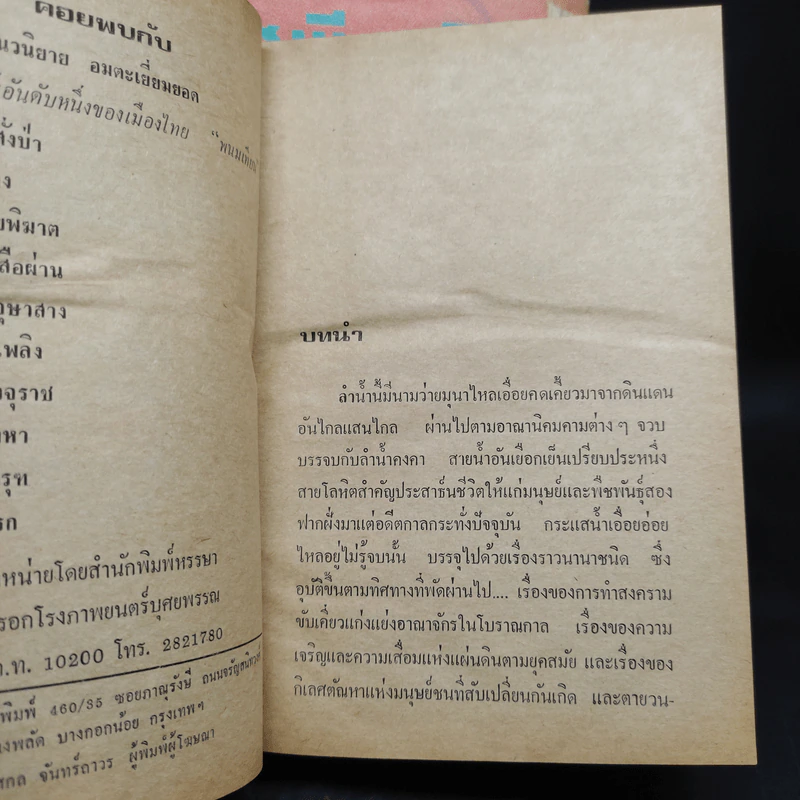 คอยพบกับ
นวนิยาย อมตะเยี่ยมยอด
อันดับหนึ่งของเมืองไทย "พนมเทียน
สือผ่าน
เพลิง
หน่ายโดยสำนักพิมพ์หรรษา
รอกโรงภาพยนตร์บุศยพรรณ
ก.ท. 10200 โทร. 2821780
พิมพ์ 460/35 ซอยภาณุรังษี ถนนจรัญสนิทวงศ์
งพลัด บางกอกน้อย กรุงเทพฯ
สกล จันทร์ถาวร ผู้พิมพ์ผู้โฆษณา
บทนำ
ลำน้ำนี้มีนามว่ายมุนาไหลเอื่อยคดเคี้ยวมาจากดินแดน
อันไกลแสนไกล ผ่านไปตามอาณานิคมคามต่าง ๆ จวบ
บรรจบกับลำน้ำคงคา สายน้ำอันเยือกเย็นเปรียบประหนึ่ง
สายโลหิตสำคัญประสาธ์นชีวิตให้แก่มนุษย์และพืชพันธุ์สอง
ฟากฝั่งมาแต่อดีตกาลกระทั่งปัจจุบัน กระแสน้ำเอื่อยอ่อย
ไหลอยู่ไม่รู้จบนั้น บรรจุไปด้วยเรื่องราวนานาชนิด ซึ่ง
อุบัติขึ้นตามทิศทางที่พัดผ่านไป.... เรื่องของการทำสงคราม
ขับเคี่ยวแก่งแย่งอาณาจักรในโบราณกาล เรื่องของความ
เจริญและความเสื่อมแห่งแผ่นดินตามยุคสมัย และเรื่องของ
กิเลศตัณหาแห่งมนุษย์ชนที่สับเปลี่ยนกันเกิด และตายวน-